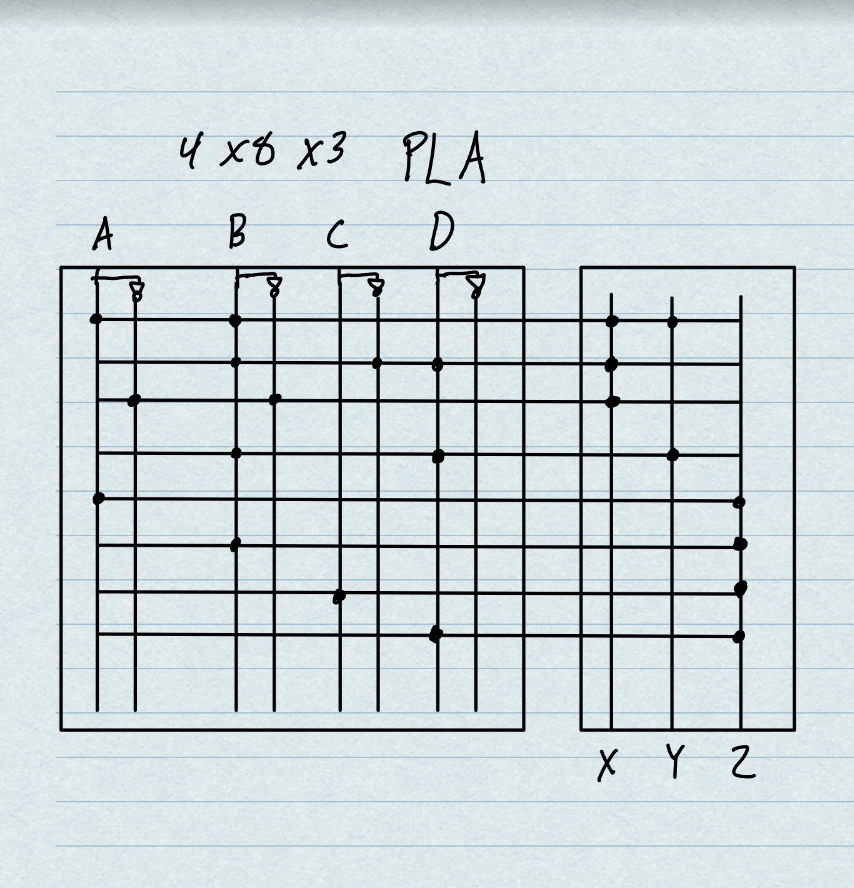 4 x8 x3 PLA
A B C D
X Y Z